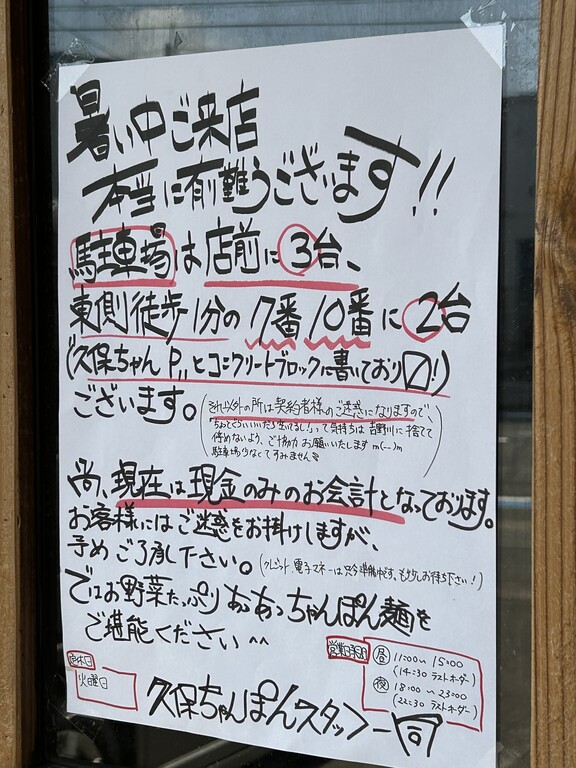 暑い中ご来店
本当に有難うございます!!
駐車場は店前に③台、
東側徒歩1分の7番10番に②台
("久保ちゃんP"とコンクリートブロックに書いております!)
ございます。
(それ以外の所は契約者様のご迷惑になりますので、
「ちょっとぐらいいいだろ生てるし!」って気持ちは吉野川に捨てて
停めないよう、ご協力お願いいたしますm(__)m
駐車場少なくてすみません
尚、現在は現金のみのお会計となっております。
お客様にはご迷惑をお掛けしますが、
予めご了承下さい。(クレジット、電子マネーは只今準備中です、もう少しお待ち下さい!)
ではお野菜たっぷりあっあっちゃんぽん麺を
ご堪能ください^^
定休日
火曜日
営業時間
昼 11:00~15:00
(14:30 ラストオーダー)
夜 18:00~23:00
(22:30 ラストオーダー)
久保ちゃんぽんスタッフ一同